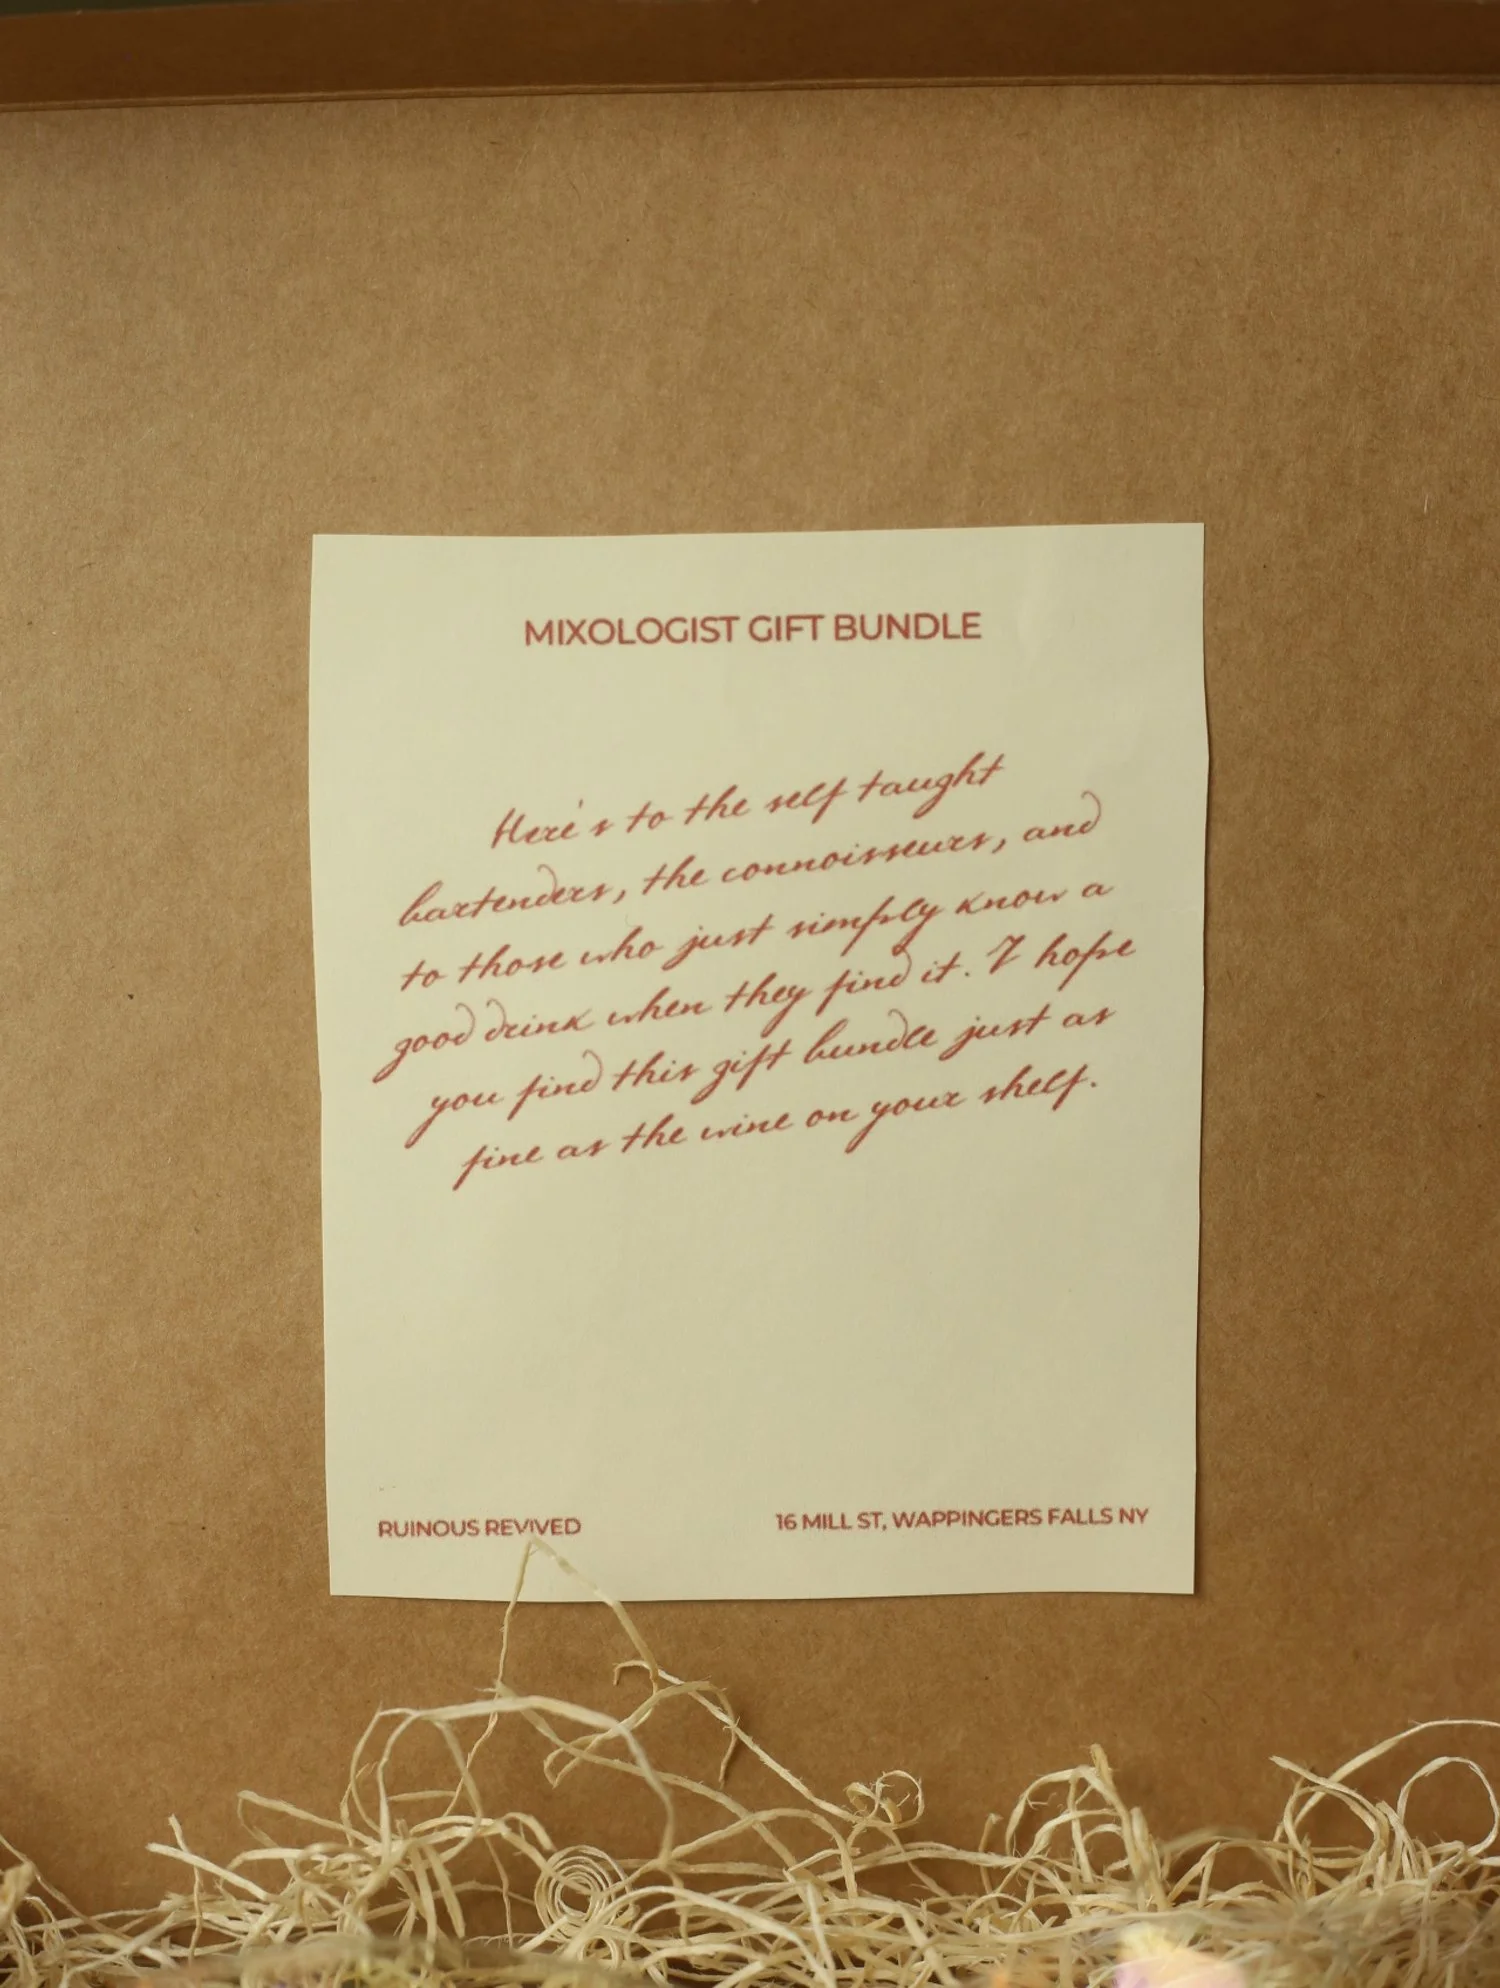 MIXOLOGIST GIFT BUNDLE
Here's to the self taught
bartenders, the connoisseurs, and
to those who just simply know a
good drink when they find it. I hope
you find this gift bundle just as
fine as the wine on your shelf.
RUINOUS REVIVED
16 MILL ST, WAPPINGERS FALLS NY